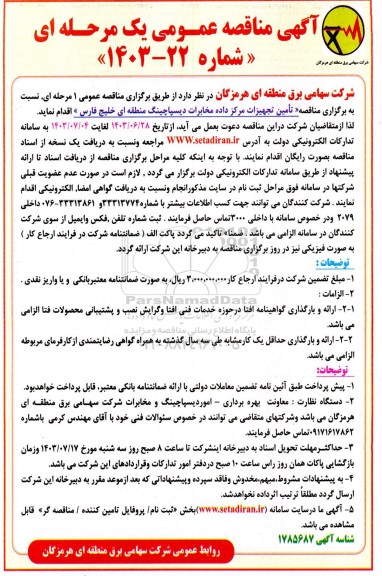 آگهی مناقصه عمومی یک مرحله ای
« شماره ۲۲-۱۴۰۳»
شرکت سهامی برق منطقه ای هرمزگان
شرکت سهامی برق منطقه ای هرمزگان در نظر دارد از طریق برگزاری مناقصه عمومی ۱ مرحله ای، نسبت
به برگزاری مناقصه« تأمین تجهیزات مرکز داده مخابرات دیسپاچینگ منطقه ای خلیج فارس » اقدام نماید.
لذا ازمتقاضیان شرکت دراین مناقصه دعوت بعمل می آید، ازتاریخ ۱۴۰۳/۰۶/۲۸ لغایت ۱۴۰۳/۰۷/۰۴ به سامانه
تدارکات الکترونیکی دولت به آدرس WWW.setadiran.ir مراجعه ونسبت به دریافت یک نسخه از اسناد
مناقصه بصورت رایگان اقدام نمایند. با توجه به اینکه کلیه مراحل برگزاری مناقصه از دریافت اسناد تا ارائه
پیشنهاد از طریق سامانه تدارکات الکترونیکی دولت برگزار می گردد . لازم است در صورت عدم عضویت قبلی
شرکتها در سامانه فوق مراحل ثبت نام در سایت مذکورانجام ونسبت به دریافت گواهی امضا، الکترونیکی اقدام
نمایند . شرکت کنندگان می توانند جهت کسب اطلاعات بیشتر با شماره ۳۳۳۱۳۷۷۴و ۳۳۳۱۳۸۶۱-۰۷۶ داخلی
۲۰۷۹ ودر خصوص سامانه با داخلی ۳۰۰۰تماس حاصل فرمایند . ثبت شماره تلفن ،فکس وایمیل از سوی شرکت
کنندگان در سامانه الزامی می باشد . ضمنا" تاکید می گردد پاکت الف ( ضمانتنامه شرکت در فرایند ارجاع کار )
به صورت فیزیکی نیز در روز برگزاری مناقصه به دبیرخانه این شرکت ارائه گردد.
توضیحات :
۱- مبلغ تضمین شرکت درفرایند ارجاع کار ۳،۰۰۰،۰۰۰،۰۰۰ ریال، به صورت ضمانتنامه معتبربانکی و یا واریز نقدی .
۲- الزامات :
۲-۱- ارائه و بارگذاری گواهینامه افتا درحوزه خدمات فنی افتا وگرایش نصب و پشتیبانی محصولات فتا الزامی
می باشد.
۲-۲- ارائه و بارگذاری حداقل یک کارمشابه طی سه سال گذشته به همراه گواهی رضایتمندی ازکارفرمای مربوطه
الزامی می باشد.
توضیحات:
۱- پیش پرداخت طبق آئین نامه تضمین معاملات دولتی با ارائه ضمانتنامه بانکی معتبر، قابل پرداخت خواهدبود.
۲- دستگاه نظارت : معاونت بهره برداری – اموردیسپاچینگ و مخابرات شرکت سهامی برق منطقه ای
هرمزگان می باشد وشرکتهای متقاضی می توانند در خصوص سئوالات فنی خود با آقای مهندس کرمی باشماره
۰۹۱۷۱۶۱۷۸۶۲تماس حاصل فرمایند.
۳- حداکثرمهلت تحویل اسناد به دبیرخانه اینشرکت تا ساعت ۸ صبح روز سه شنبه مورخ ۱۴۰۳/۰۷/۱۷ وزمان
بازگشایی پاکات همان روز راس ساعت ۱۰ صبح دردفتر امور تدارکات وقراردادهای این شرکت می باشد.
۴- به پیشنهادات مشروط،مبهم،مخدوش وفاقد سپرده وپیشنهاداتی که بعد ازموعد مقرر به دبیرخانه این شرکت
ارسال گردد مطلقاً ترتیب اثرداده نخواهدشد.
۵- آگهی ما درسایت سامانه (www.setadiran.ir)بخش «ثبت نام/ پروفایل تامین کننده / مناقصه گر» قابل
مشاهده می باشد.
شناسه آگهی ۱۷۸۵۶۸۷
روابط عمومی شرکت سهامی برق منطقه ای هرمزگان
ParsNamadData
پایگاه اطلاع رسانی مناقصه و مزایده